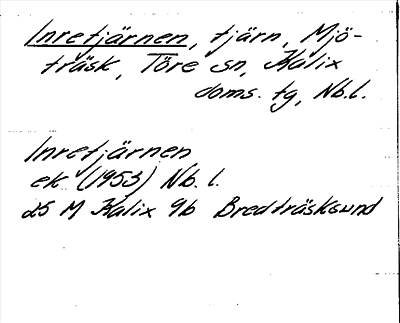 Inretjärnen, tjärn, Mjö-
träsk, Töre sn, Kalix
doms. tg, Nb.l.
Inretjärnen
ek (1953) Nb. l.
25 M Kalix 9b Bredträsksund